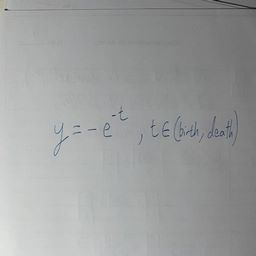 y = -e^{-t}, t ∈ (birth, death)